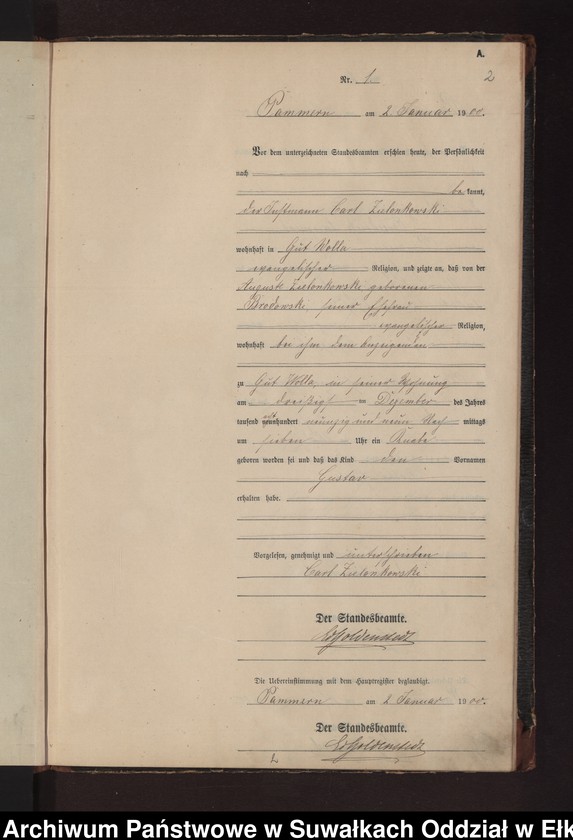 A.
2
Nr. 1.
Pammern am 2 Januar 1900.
Vor dem unterzeichneten Standesbeamten erschien heute, der Persönlichkeit
nach
be kannt,
der Instmann Carl Zielonkowski
wohnhaft in Gut Wolla
evangelischer Religion, und zeigte an, daß von der
Auguste Zielonkowski geborenen
Brodowski seiner Ehefrau
evangelischer Religion,
wohnhaft bei ihm dem Anzeigenden
zu Gut Wolla in seiner Wohnung
am dreißigst en Dezember des Jahres
tausend neunhundert acht neunzig und neun Nach mittags
um sieben Uhr ein Knabe
geboren worden sei und daß das Kind den Vornamen
Gustav
erhalten habe.
Vorgelesen, genehmigt und unterschrieben
Carl Zielonkowski.
Der Standesbeamte.
Goldenstedt
Die Uebereinstimmung mit dem Hauptregister beglaubigt.
Pammern am 2 Januar 1900.
Der Standesbeamte.
Goldenstedt
Archiwum Państwowe w Suwałkach Oddział w Ełk